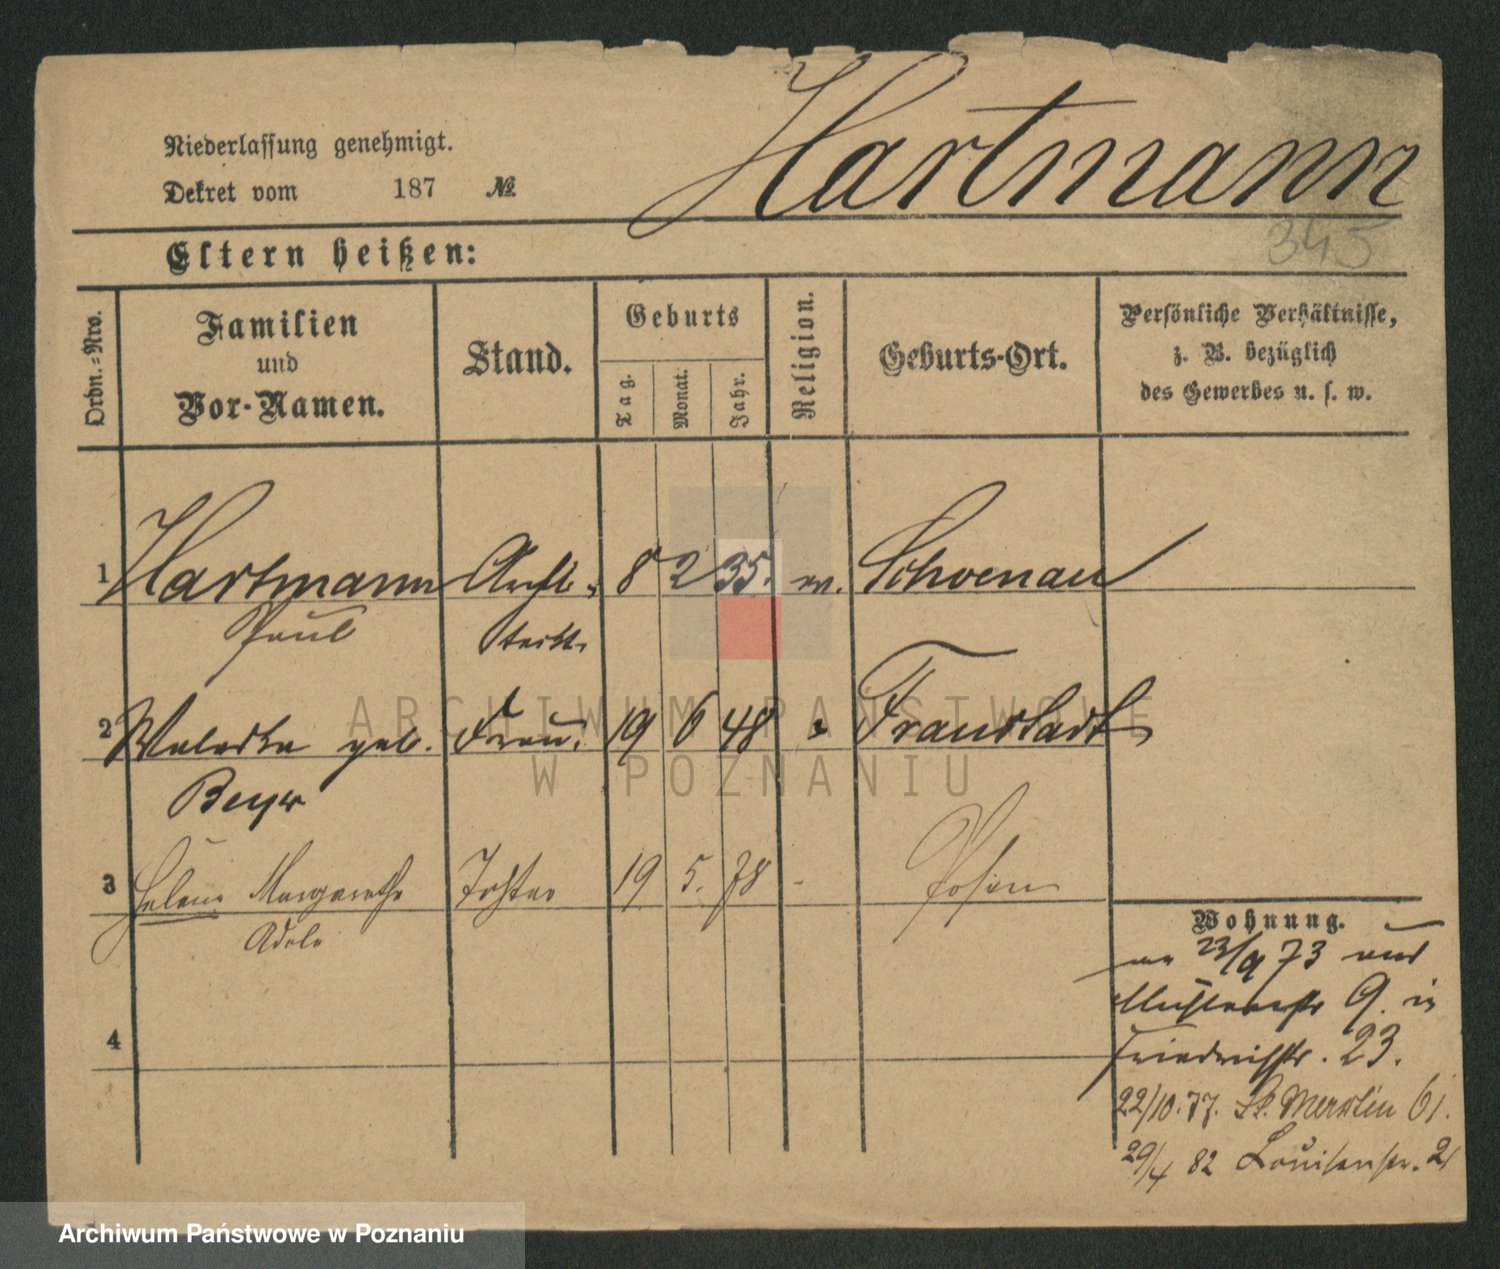 Hartmann
Niederlassung genehmigt.
Dekret vom 187 №
345
Eltern heißen:
Ordn.=Nro.
Familien
und
Vor-Namen.
Stand.
Geburts
Tag.
Monat.
Jahr.
Religion.
Geburts-Ort.
Persönliche Verhältnisse,
z. B. bezüglich
des Gewerbes u. s. w.
1 Hartmann Archi- 8 2 35. ev. Schoenau
Paul tekt.
2 Waleska geb. Frau. 19 6 48 Fraustadt
Beyer
3 Helene Margarethe Tochter 19 5. 78 - Posen
Adele
4
Wohnung.
23/9 73 aus
9. in
Friedrichstr. 23.
22/10. 77. St. Martin 61.
29/4 82 Louisenstr. 2
ARCHIWUM PAŃSTWOWE
W POZNANIU
Archiwum Państwowe w Poznaniu